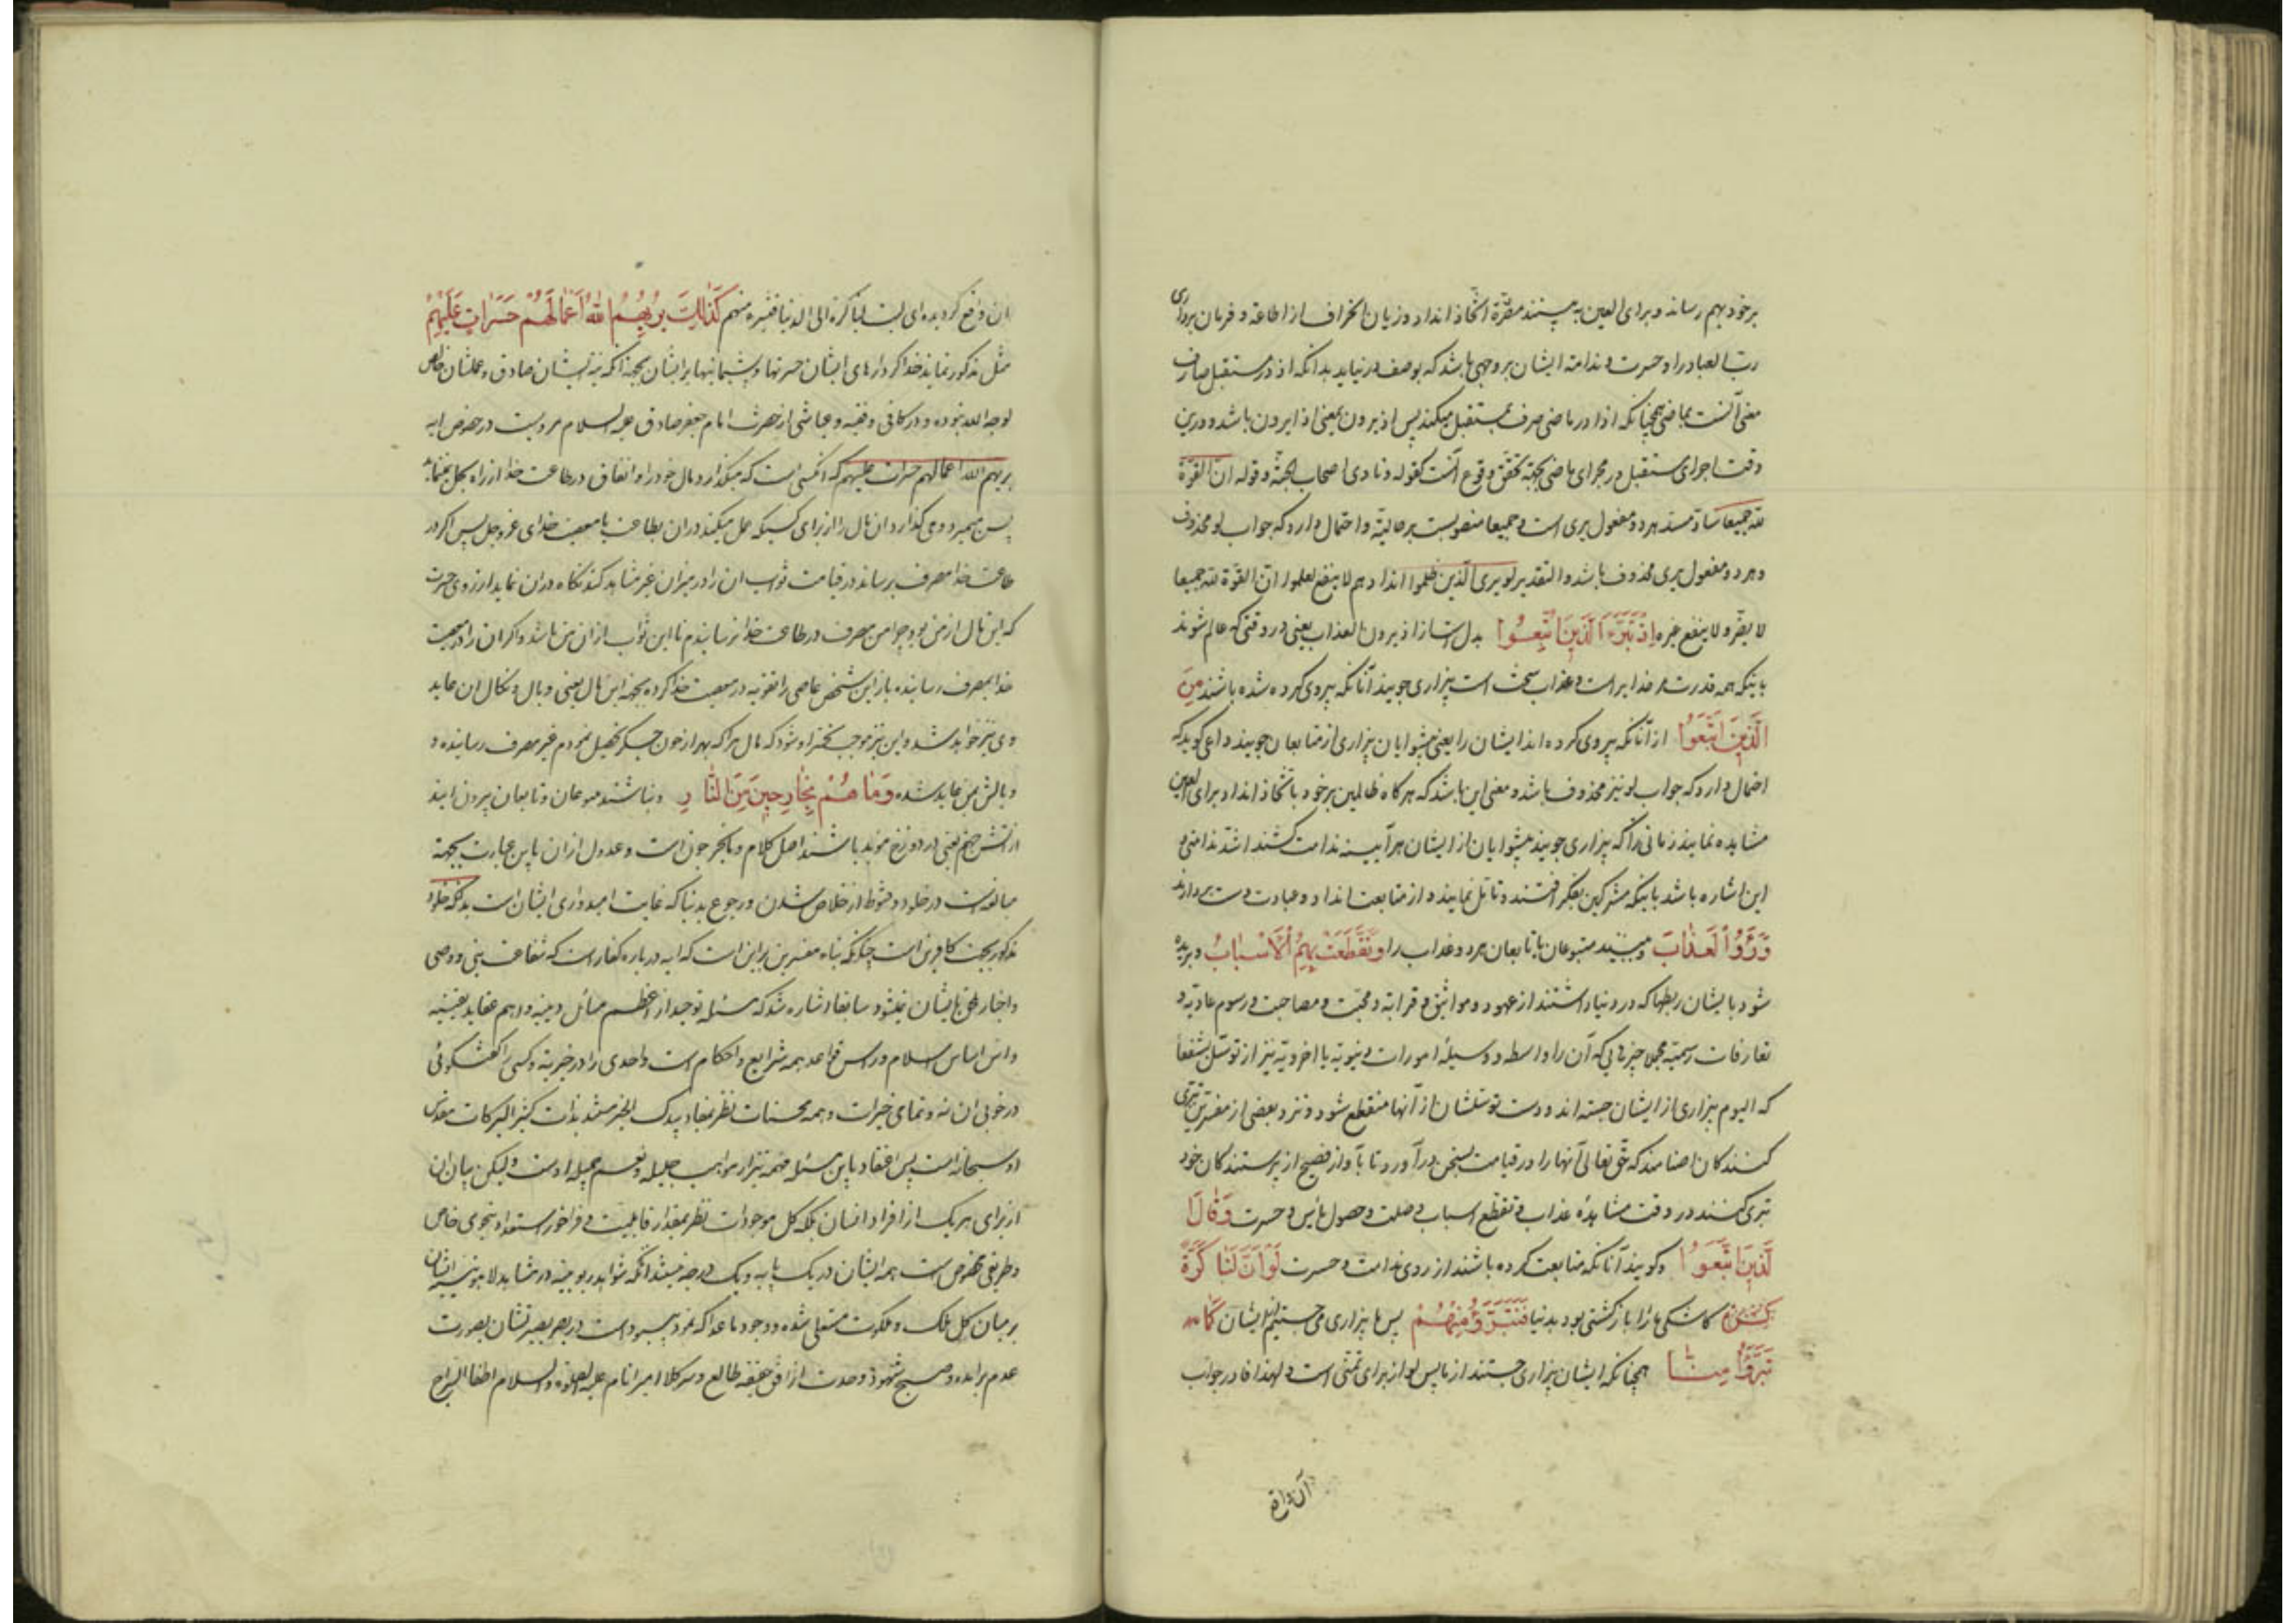 برخود بهم رساند و برای العین به بینند مضرة اتخاذ انداد و زیان انحراف از اطاعة و فرمان برداری
رب العباد را و حسرت و ندامة ایشان بر وجهی باشد که بوصف در نیاید بدانکه اذ در مستقبل صارف
معنی آنست بماضی همچنانکه اذا در ماضی صرف بمستقبل میکند پس اذ یرون بمعنی اذا یرون باشد و درین
وقت اجرای مستقبل در مجرای ماضی بجهة تحقق وقوع آنست کقوله و نادی اصحاب الجنة و قوله ان القوة
لله جمیعا ساد مسد هر دو مفعول یری است و جمیعا منصوبست بر حالیة و احتمال دارد که جواب لو محذوف
و هر دو مفعول یری محذوف باشد و التقدیر لو یری الذین ظلموا اندادهم لا ینفع لعلموا ان القوة لله جمیعا
لا یضر و لا ینفع غیره اذ تبرء الذین اتبعوا بدل است از اذ یرون العذاب یعنی در وقتی که عالم شوند
باینکه همه قدرت مر خدایراست و عذاب سخت است بیزاری جویند آنانکه پیروی کرده شده باشند من
الذین اتبعوا از آنانکه پیروی کرده اند ایشان را یعنی پیشوایان بیزاری از متابعان جویند و
احتمال دارد که جواب لو نیز محذوف باشد و معنی این باشد که هر کاه ظالمین برخود باتخاذ انداد برای العین
مشاهده نمایند زمانی را که بیزاری جویند پیشوایان از ایشان هر آیینه ندامت کشند اشد ندامتی و
این اشاره باشد باینکه مشرکین بفکر افتند و تامل نمایند و از متابعت انداد و عبادت دست بردارند
و رؤا العذاب و ببینند متبوعان با تابعان مرد و عذاب را و تقطعت بهم الاسباب و بریده
شود بایشان ربطها که در دنیا داشتند از عهود و مواثیق و قرابة و محبت و مصاحبت و رسوم عادیة و
تعارفات رسمیة مجملا چیزی که آن را واسطه و وسیلهٔ امورات دنیویة یا اخرویة نیز از توسل بشفعا
که الیوم بیزاری از ایشان جسته اند و دست توسلشان از آنها منقطع شود و نزد بعضی از مفسرین تبری
کنندکان اصنامند که حق تعالی آنها را در قیامت بسخن درآورد تا بآواز فصیح از پرستندکان خود
تبری کنند در وقت مشاهدهٔ عذاب و تقطع اسباب وصلت و حصول یأس و حسرت و قال
الذین اتبعوا و کویند آنانکه متابعت کرده باشند از روی ندامت و حسرت لو ان لنا کرة
کاشکی ما را باز کشتی بود بدنیا فنتبرؤ منهم پس ما بیزاری می جستیم از ایشان کما
تبرؤا منا همچنانکه ایشان بیزاری جستند از ما پس لو از برای تمنی است و لهذا فا در جواب
آن واقع
ان واقع کردیده ای لیت لنا کرة الی الدنیا فنتبرء منهم کذلک یریهم الله اعمالهم حسرات علیهم
مثل مذکور نماید خدا کردارهای ایشان حسرتها و پشیمانیها بر ایشان بجهة آنکه نیة ایشان صادق و عملشان خالص
لوجه الله نبوده و در کافی و فقیه و عیاشی از حضرت امام جعفر صادق علیه السلام مرویست در خصوص ایه
یریهم الله اعمالهم حسرات علیهم که آنکسی است که میکذارد مال خود را و انفاق در طاعت خدا از راه بخل نمینماید
پس میمیرد و می کذارد ان مال را از برای کسیکه عمل میکند در ان بطاعت یا معصیت خدای عز و جل پس اکر در
طاعت خدا مصرف برساند در قیامت ثواب ان را در میزان غیر مشاهد کند نکاه دران نماید از روی حسرت
که این مال از من بود چرا من مصرف در طاعت خدا نرسانیدم تا این ثواب از ان من باشد و اکر ان را در معصیت
خدا بمصرف رسانیده باز این شخص عاصی را تقویه در معصیت خدا کرده بجهة این مال یعنی وبال و نکال ان عاید
وی نیز خواهد شد و این نیز موجب تحسر او شود که مال مرا که بهزار خون جکر تحصیل نمودم غیر مصرف رسانیده و
وبالش بمن عاید شده و ما هم بخارجین من النار و نباشند متبوعان و تابعان بیرون ایند
از آتش جهنم یعنی در دوزخ مؤبد باشند اصل کلام و ما یخرجون است و عدول از ان باین عبارت بجهة
مبالغه است در خلود و قنوط از خلاص شدن و رجوع بدنیا که غایت امیدواری ایشان است بدانکه خلود
مذکور بجهت کافرین است چنانکه بناء مفسرین براین است که ایه در باره کفار است که شفاعت نبی و وصی
و اخیار ملحق بایشان نمیشود سابقا اشاره شد که مسئله توحید از اعظم مسائل دینیه و اهم عقاید یقینیه
و اس اساس اسلام و راس قواعد همه شرایع و احکام است و احدی را در خیریة و کسی را کفتکوئی
در خوبی ان نه و تمامی خیرات و همه محسنات نظر بمفاد بیدک الخیر مستند بذات کثیر البرکات مقدس
او سبحانه است پس اعتقاد باین مسئله مهمه نیز از مواهب جلیله و نعم جمیله اوست ولیکن بیان ان
از برای هر یک از افراد انسان بلکه کل موجودات نظر بمقدار قابلیت و فراخور استعداد بنحوی خاص
و طریقی مخصوص است همه ایشان در یک پایه و یک درجه نیستند آنکه شواهد ربوبیة در مشاهد لاهوتیه ایشان
بر میان کل ملک و ملکوت مستعلی شده و وجود ماعدا که نمود بیبود است در بصر بصیرتشان بصورت
عدم برآمده و صبح شهود وحدت از افق حقیقه طالع و سر کلام امیر انام علیه الصلوة و السلام اطفأ السراج